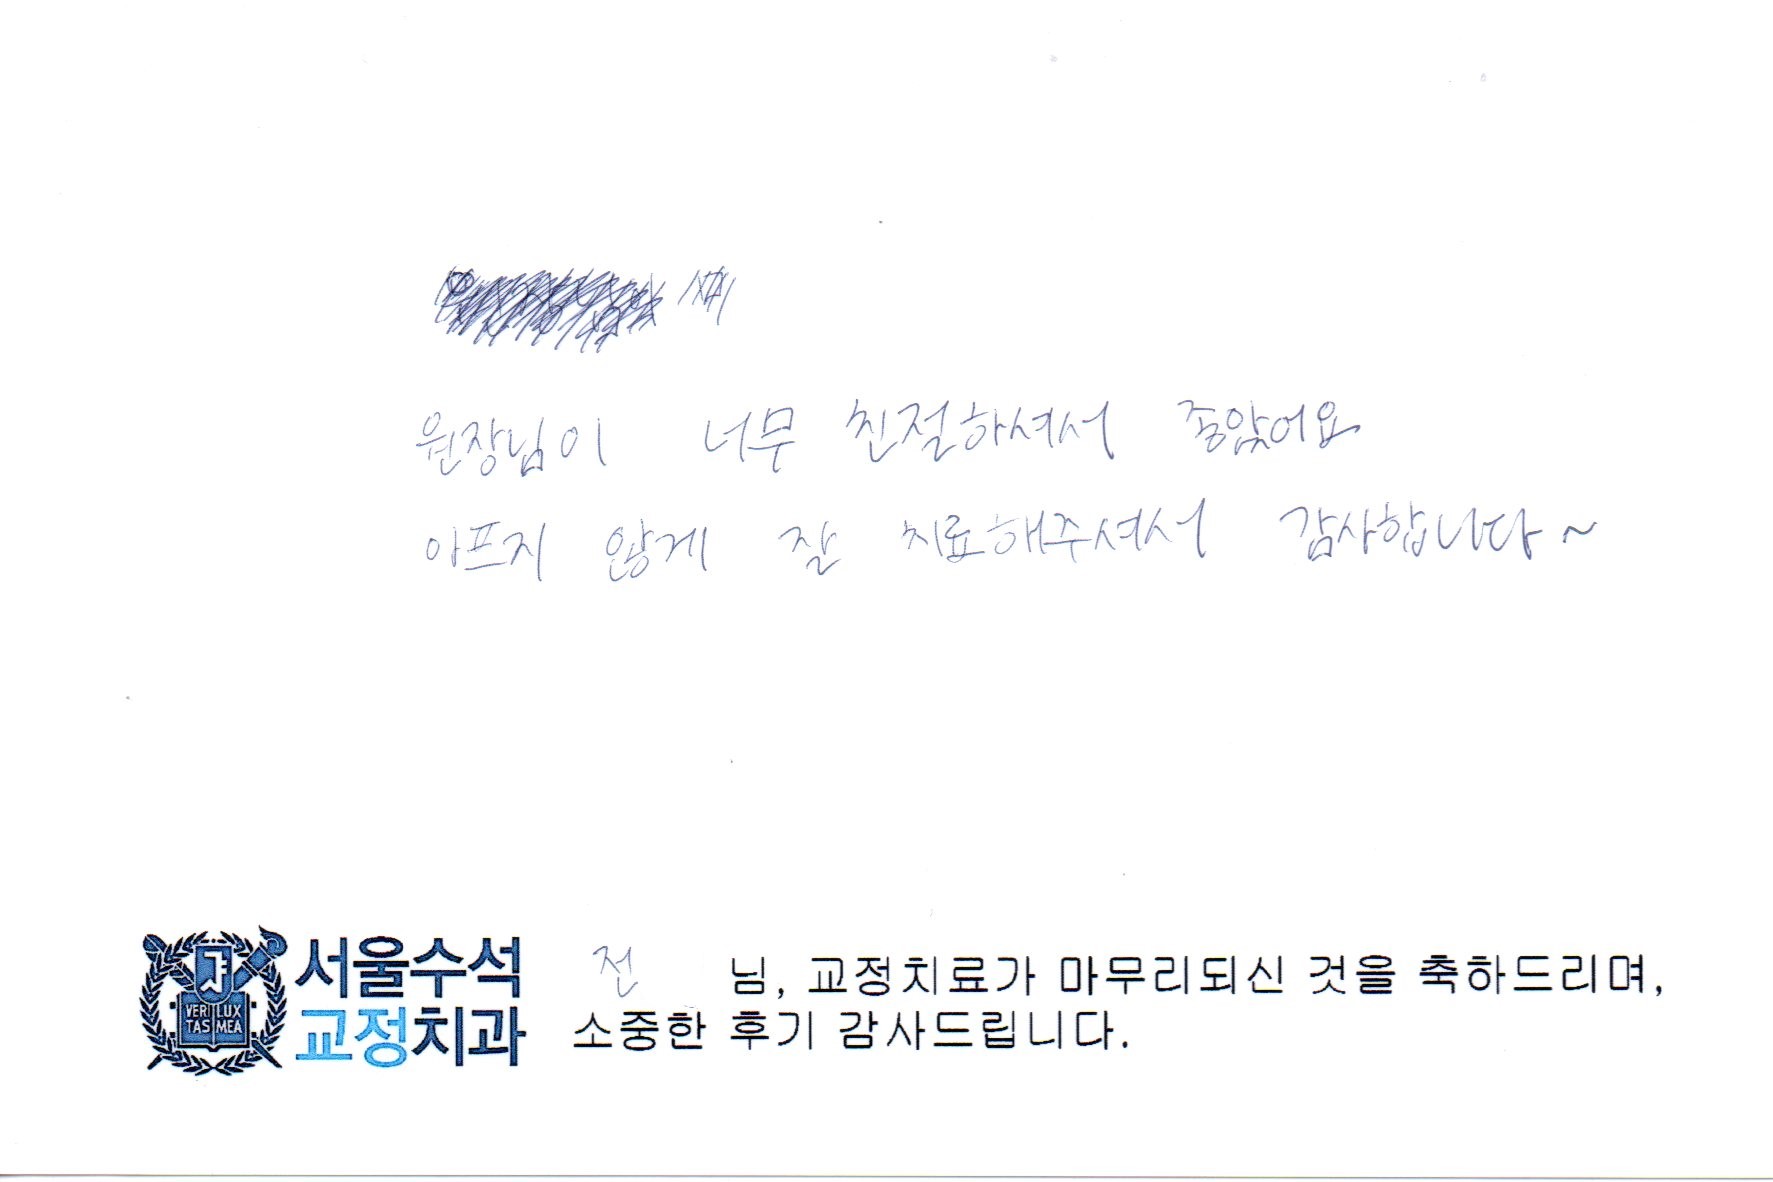 원장님이 너무 친절하셔서 좋았어요
아프지 않게 잘 치료해주셔서 감사합니다~
서울수석
교정치과
VERI LUX
TAS MEA
전 님, 교정치료가 마무리되신 것을 축하드리며,
소중한 후기 감사드립니다.